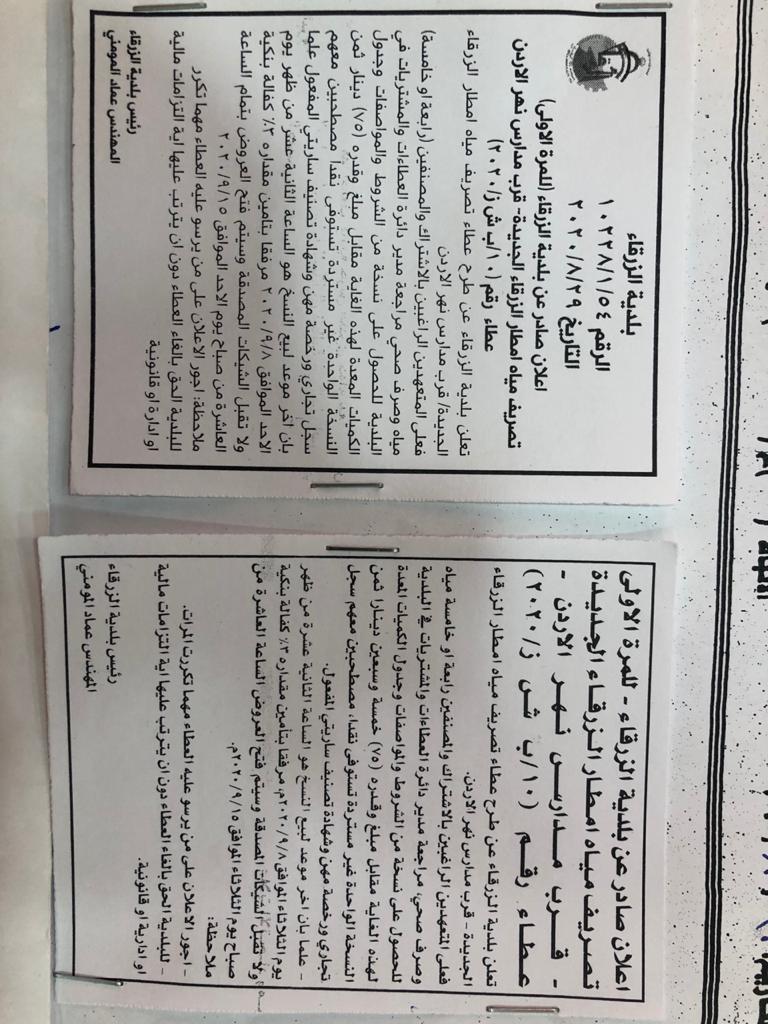 بلدية الزرقاء
الرقم ١٠٢٢٨/١/٥٤
التاريخ ٢٠٢٠/٨/٢٩
اعلان صادر عن بلدية الزرقاء (للمرة الاولى)
تصريف مياه امطار الزرقاء الجديدة- قرب مدارس نهر الاردن
عطاء رقم (١٠/ب ش ز/٢٠٢٠)
تعلن بلدية الزرقاء عن طرح عطاء تصريف مياه امطار الزرقاء
الجديدة/ قرب مدارس نهر الاردن
فعلى المتعهدين الراغبين بالاشتراك والمصنفين (رابعة او خامسة)
مياه وصرف صحي مراجعة مدير دائرة العطاءات والمشتريات في
البلدية للحصول على نسخة من الشروط والمواصفات وجدول
الكميات المعدة لهذه الغاية مقابل مبلغ وقدره (٧٥) دينار ثمن
النسخة الواحدة غير مستردة تستوفى نقدا مصطحبين معهم
سجل تجاري ورخصة مهن وشهادة تصنيف ساريتي المفعول علما
بان اخر موعد لبيع النسخ هو الساعة الثانية عشر من ظهر يوم
الاحد الموافق ٢٠٢٠/٩/٨ مرفقا بتامين مقداره ٣٪ كفالة بنكية
ولا تقبل الشيكات المصدقة وسيتم فتح العروض بتمام الساعة
العاشرة من صباح يوم الاحد الموافق ٢٠٢٠/٩/١٥
ملاحظة: اجور الاعلان على من يرسو عليه العطاء مهما تكرر
للبلدية الحق بالغاء العطاء دون ان يترتب عليها اية التزامات مالية
او ادارة او قانونية
رئيس بلدية الزرقاء
المهندس عماد المومني
اعلان صادر عن بلدية الزرقاء - للمرة الاولى
تصريف مياه امطار الزرقاء الجديدة
- قرب مدارس نهر الاردن -
عطاء رقم (١٠/ب ش ز/٢٠٢٠)
تعلن بلدية الزرقاء عن طرح عطاء تصريف مياه امطار الزرقاء
الجديدة - قرب مدارس نهر الاردن.
فعلى المتعهدين الراغبين بالاشتراك والمصنفين رابعة او خامسة مياه
وصرف صحي، مراجعة مدير دائرة العطاءات والمشتريات في البلدية
للحصول على نسخة من الشروط والمواصفات وجدول الكميات المعدة
لهذه الغاية مقابل مبلغ وقدره (٧٥) خمسة وسبعين دينارا ثمن
النسخة الواحدة غير مستردة تستوفى نقدا، مصطحبين معهم سجل
تجاري ورخصة مهن وشهادة تصنيف ساريتي المفعول.
- علما بان اخر موعد لبيع النسخ هو الساعة الثانية عشرة من ظهر
يوم الثلاثاء الموافق ٢٠٢٠/٩/٨م، مرفقا بتأمين مقداره ٣٪ كفالة بنكية
ولا تقبل الشيكات المصدقة وسيتم فتح العروض الساعة العاشرة من
صباح يوم الثلاثاء الموافق ٢٠٢٠/٩/١٥م.
ملاحظة:
- اجور الاعلان على من يرسو عليه العطاء مهما تكررت المرات.
- للبلدية الحق بالغاء العطاء دون ان يترتب عليها اية التزامات مالية
او ادارية او قانونية.
رئيس بلدية الزرقاء
المهندس عماد المومني